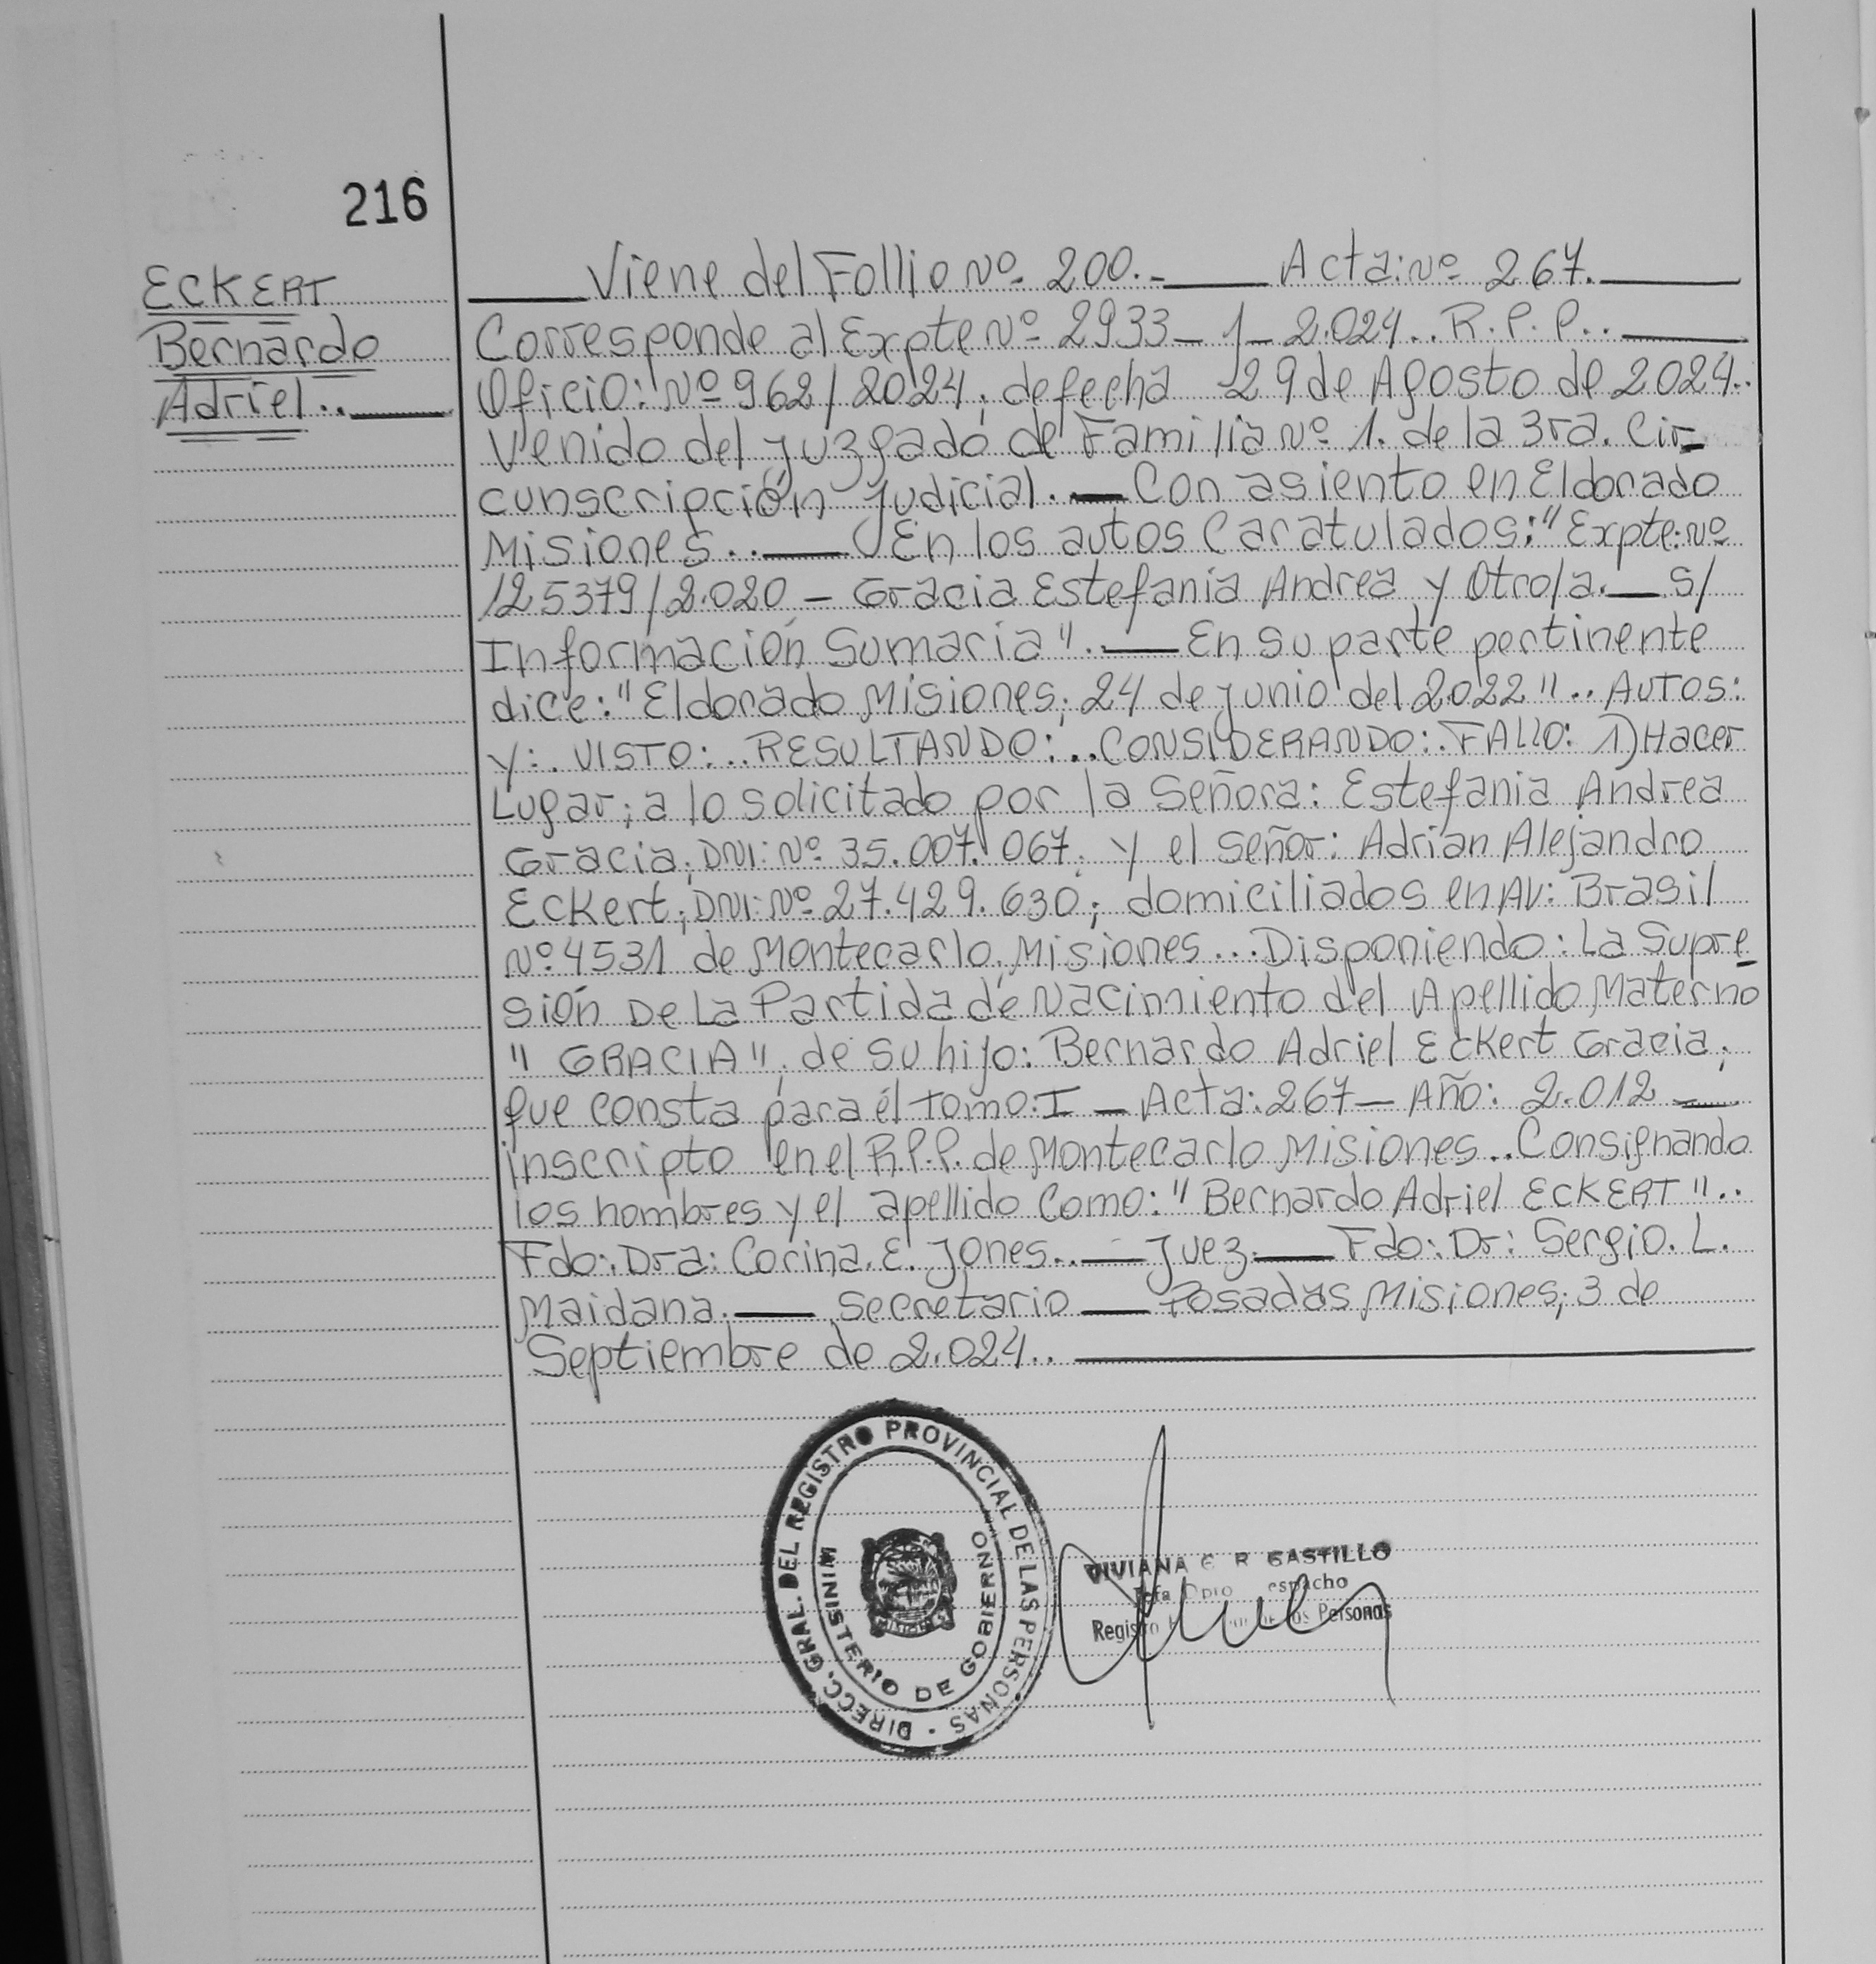 216
ECKERT
Bernardo
Adriel..
Viene del Follio Nº 200.- Acta: Nº 267.
Corresponde al Expte Nº 2933-1-2.024.. R.P.P..
Oficio: Nº 962/2024; de fecha 29 de Agosto de 2024..
Venido del Juzgado de Familia Nº 1. de la 3ra. Cir-
cunscripción Judicial. — Con asiento en Eldorado
Misiones.. — En los autos Caratulados: "Expte: Nº
125379/2.020 - Gracia Estefania Andrea y Otro/a. — S/
Información Sumaria". — En su parte pertinente
dice: "Eldorado Misiones; 24 de junio del 2.022".. AUTOS:
Y:. VISTO:.. RESULTANDO:.. CONSIDERANDO:. FALLO: 1) Hacer
Lugar; a lo solicitado por la Señora: Estefania Andrea
Gracia; DNI: Nº 35.007.067; y el señor: Adrián Alejandro
Eckert; DNI: Nº 27.429.630; domiciliados en AV: Brasil
Nº 4531 de Montecarlo, Misiones... Disponiendo: La Supre-
sión De La Partida de Nacimiento del Apellido Materno
"GRACIA"; de su hijo: Bernardo Adriel Eckert Gracia;
que consta para él Tomo: I — Acta: 267 — Año: 2.012 —
inscripto en el R.P.P. de Montecarlo Misiones.. Consignando
los nombres y el apellido Como: "Bernardo Adriel ECKERT"..
Fdo: Dra: Corina. E. Jones.. — Juez — Fdo: Dr: Sergio. L.
Maidana. — Secretario — Posadas Misiones; 3 de
Septiembre de 2.024..
DIRECC. GRAL. DEL REGISTRO PROVINCIAL DE LAS PERSONAS
MINISTERIO DE GOBIERNO
MISIONES
VIVIANA G R CASTILLO
Jefa Dpto
Registro de las Personas